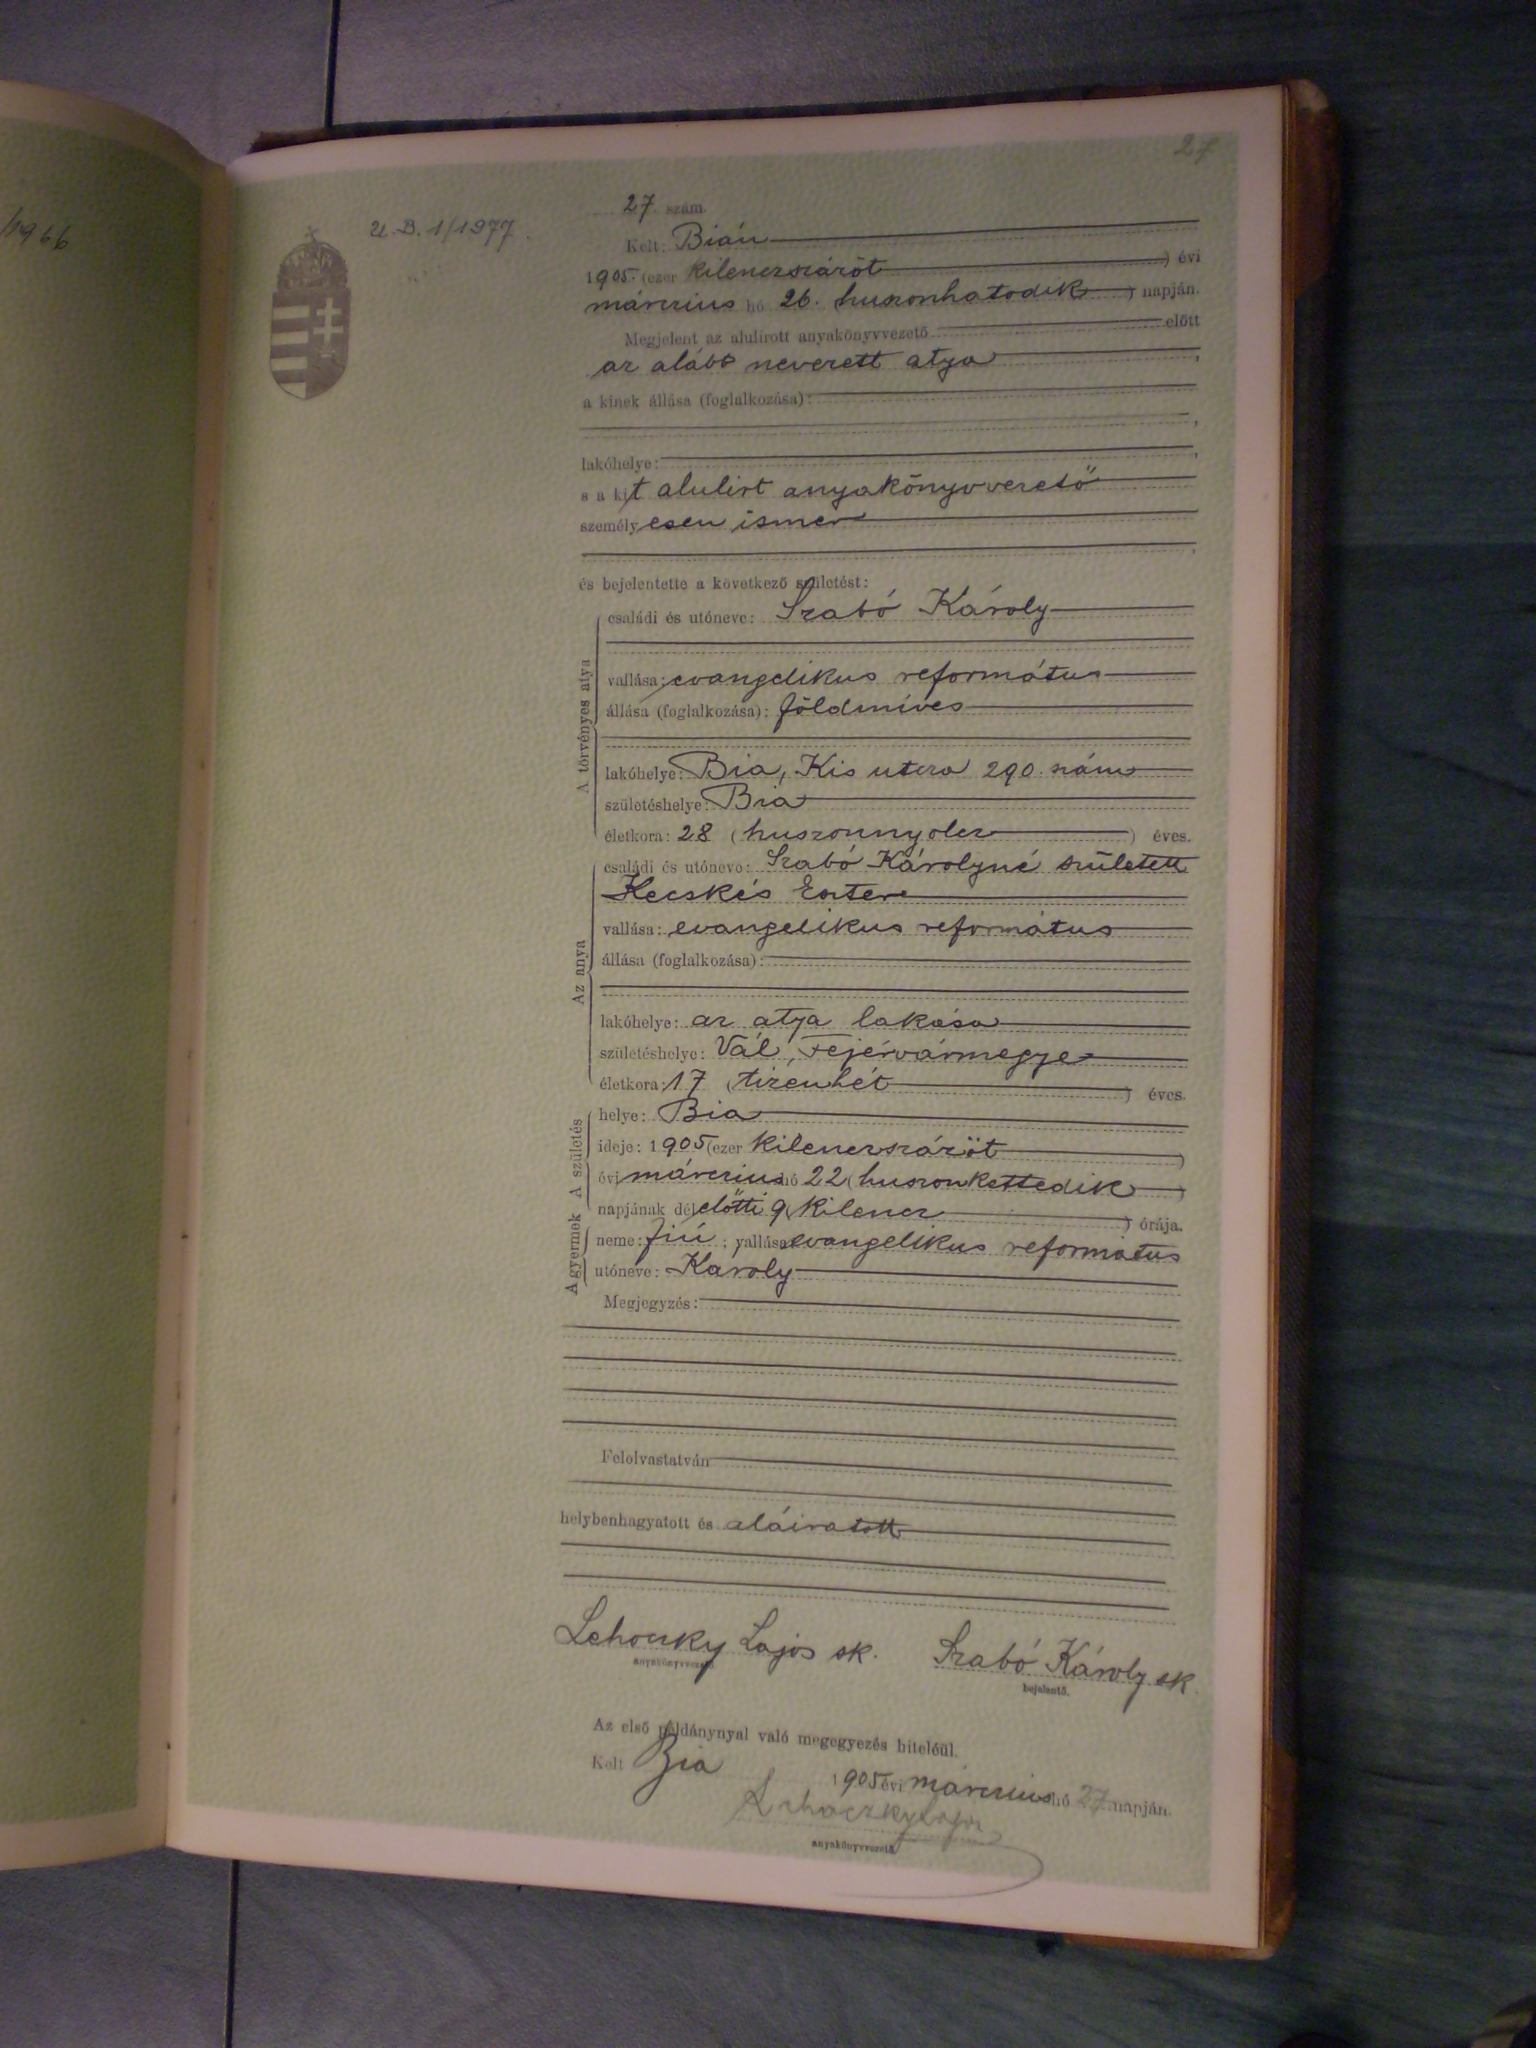 27
/1966
U.B. 1/1977.
27 szám.
Kelt: Bián
1905. (ezer kilenczszázöt) évi
márczius hó 26. (huszonhatodik) napján.
Megjelent az alulirott anyakönyvvezető előtt
az alább nevezett atya,
a kinek állása (foglalkozása):
,
lakóhelye: ,
s a kit alulirt anyakönyvvezető
személyesen ismer
,
és bejelentette a következő születést:
A törvényes atya
családi és utóneve: Szabó Károly
vallása: evangelikus református
állása (foglalkozása): földmíves
lakóhelye: Bia, Kis utcza 290. szám
születéshelye: Bia
életkora: 28 (huszonnyolcz) éves.
Az anya
családi és utóneve: Szabó Károlyné született
Kecskés Eszter
vallása: evangelikus református
állása (foglalkozása):
lakóhelye: az atya lakása
születéshelye: Vál, Fejérvármegye
életkora: 17 (tizenhét) éves.
A születés
helye: Bia
ideje: 1905 (ezer kilenczszázöt)
évi márczius hó 22 (huszonkettedik)
napjának délelőtti 9 (kilencz) órája.
A gyermek
neme: fiú; vallása: evangelikus református
utóneve: Károly
Megjegyzés:
Felolvastatván
helybenhagyatott és aláiratott
Lehoczky Lajos sk. Szabó Károly sk.
anyakönyvvezető. bejelentő.
Az első példánynyal való megegyezés hiteléül.
Kelt Bia 1905 évi márczius hó 27 napján.
Lehoczky Lajos
anyakönyvvezető.